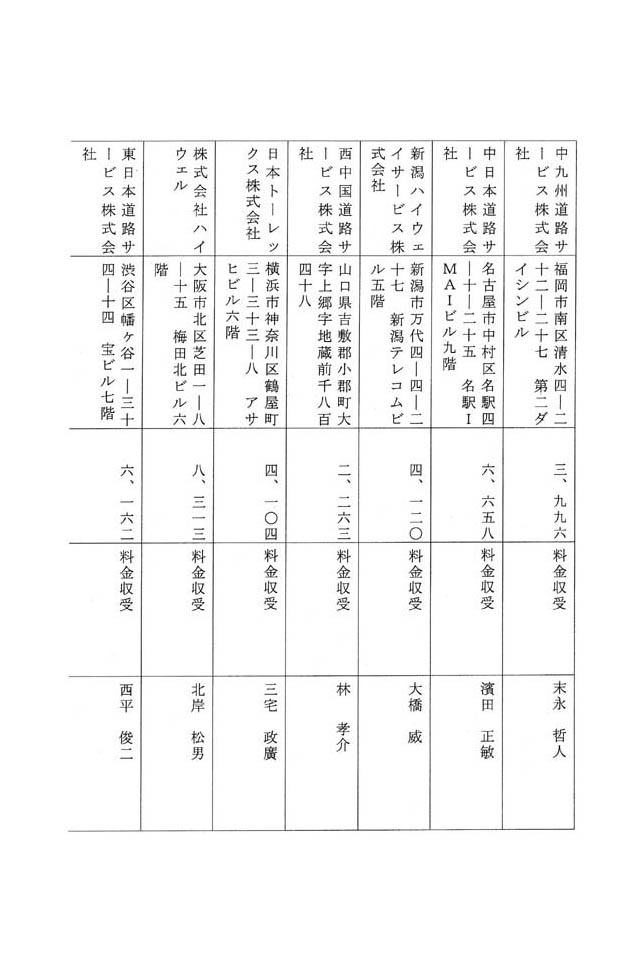 中九州道路サ
ービス株式会
社
福岡市南区清水四―二
十二―二十七　第二ダ
イシンビル
三、九九六
料金収受
末永　哲人
中日本道路サ
ービス株式会
社
名古屋市中村区名駅四
―十―二十五　名駅Ｉ
ＭＡＩビル九階
六、六五八
料金収受
濱田　正敏
新潟ハイウェ
イサービス株
式会社
新潟市万代四―四―二
十七　新潟テレコムビ
ル五階
四、一二〇
料金収受
大橋　威
西中国道路サ
ービス株式会
社
山口県吉敷郡小郡町大
字上郷字地蔵前千八百
四十八
二、二六三
料金収受
林　孝介
日本トーレッ
クス株式会社
横浜市神奈川区鶴屋町
三―三十三―八　アサ
ヒビル六階
四、一〇四
料金収受
三宅　政廣
株式会社ハイ
ウェル
大阪市北区芝田一―八
―十五　梅田北ビル六
階
八、三一三
料金収受
北岸　松男
東日本道路サ
ービス株式会
社
渋谷区幡ヶ谷一―三十
四―十四　宝ビル七階
六、一六二
料金収受
西平　俊二